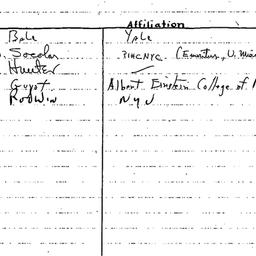 Affiliation
Bole Yale
Socolar (Emeritus, U.
Hunter
Guyot Albert Einstein College of
Rodwin NYU